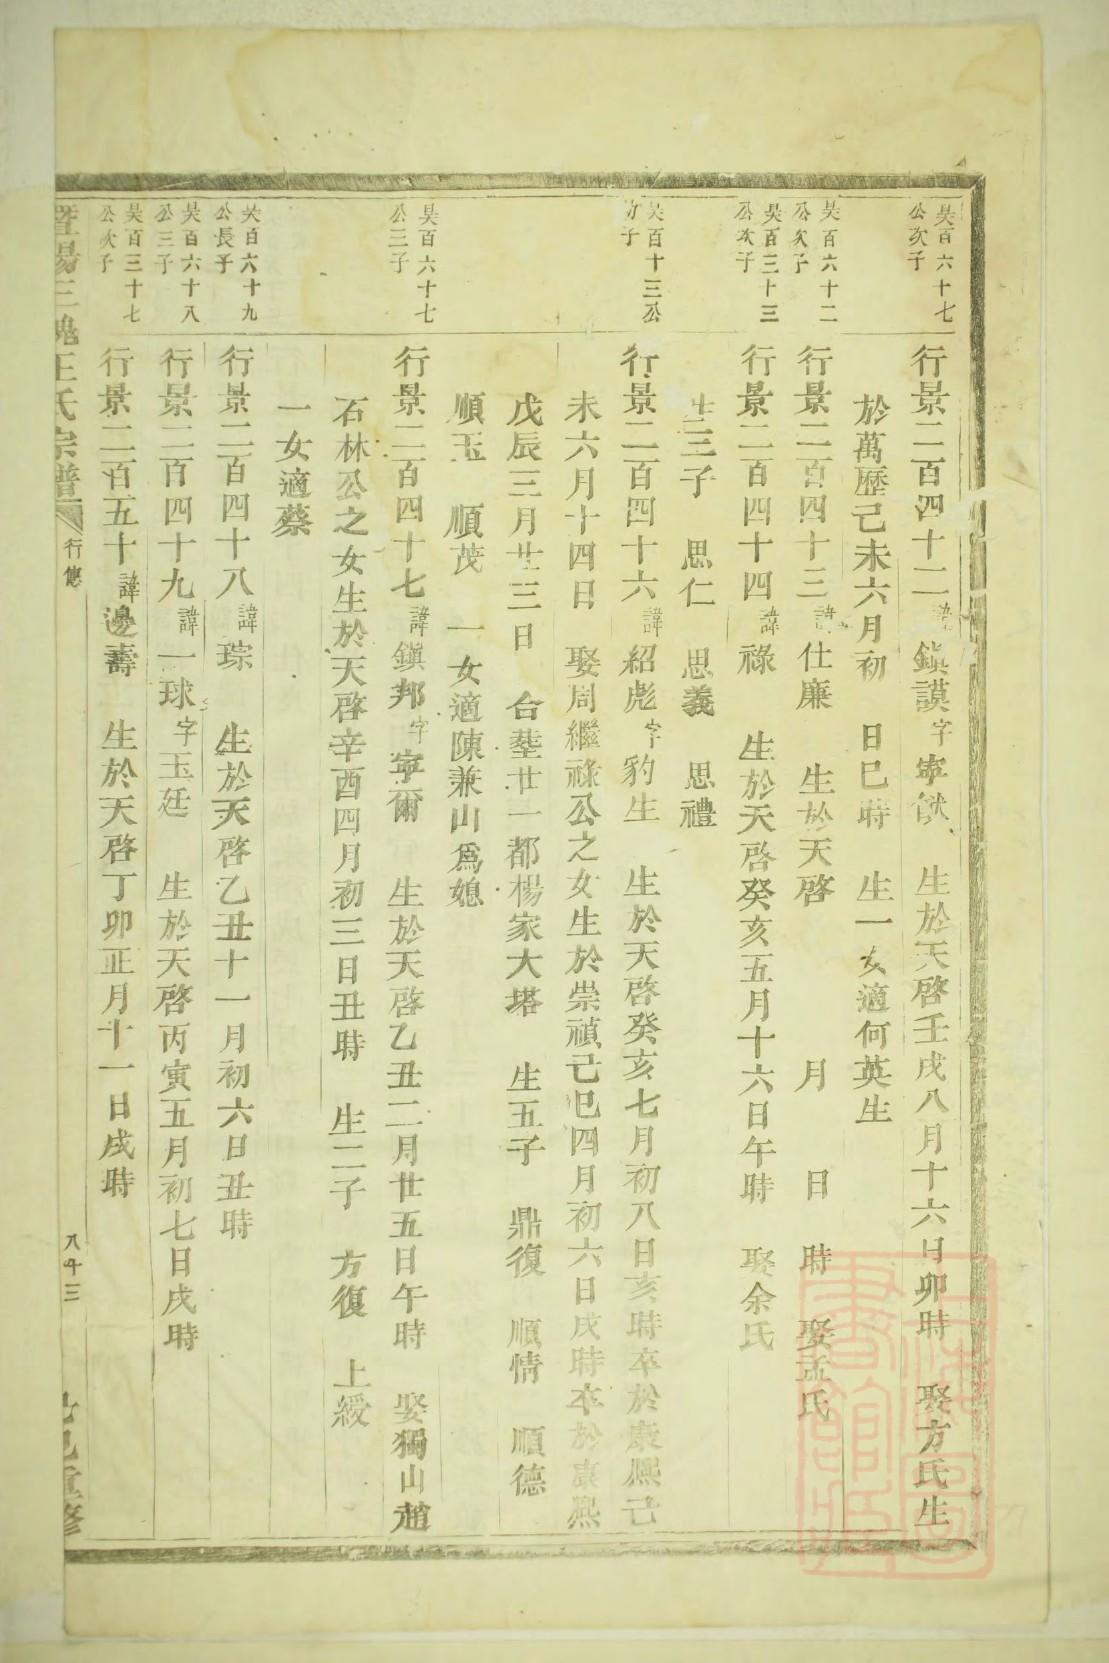 昊百六十七
公次子
行景二百四十二諱鎮謨字寧猷 生於天啓壬戌八月十六日卯時 娶方氏生
於萬歷己未六月初 日巳時 生一女適何英生
昊百六十二
公次子
行景二百四十三諱仕廉 生於天啓 月 日 時 娶孟氏
昊百三十三
公次子
行景二百四十四諱祿 生於天啓癸亥五月十六日午時 娶余氏
生三子 思仁 思義 思禮
昊百十三公
子
行景二百四十六諱紹彪字豹生 生於天啓癸亥七月初八日亥時卒於康熙己
未六月十四日 娶周繼祿公之女生於崇禎己巳四月初六日戌時卒於康熙
戊辰三月廿三日 合塟廿一都楊家大塔 生五子 鼎復 順情 順德
順玉 順茂 一女適陳兼山爲媳
昊百六十七
公三子
行景二百四十七諱鎮邦字寧爾 生於天啓乙丑二月廿五日午時 娶獨山趙
石林公之女生於天啓辛酉四月初三日丑時 生二子 方復 上綬
一女適蔡
昊百六十九
公長子
行景二百四十八諱琮 生於天啓乙丑十一月初六日丑時
昊百六十八
公三子
行景二百四十九諱一球字玉廷 生於天啓丙寅五月初七日戌時
昊百三十七
公次子
行景二百五十諱邊壽 生於天啓丁卯正月十一日戌時
暨陽三槐王氏宗譜 行傳 八十三 重修
上海圖書館藏